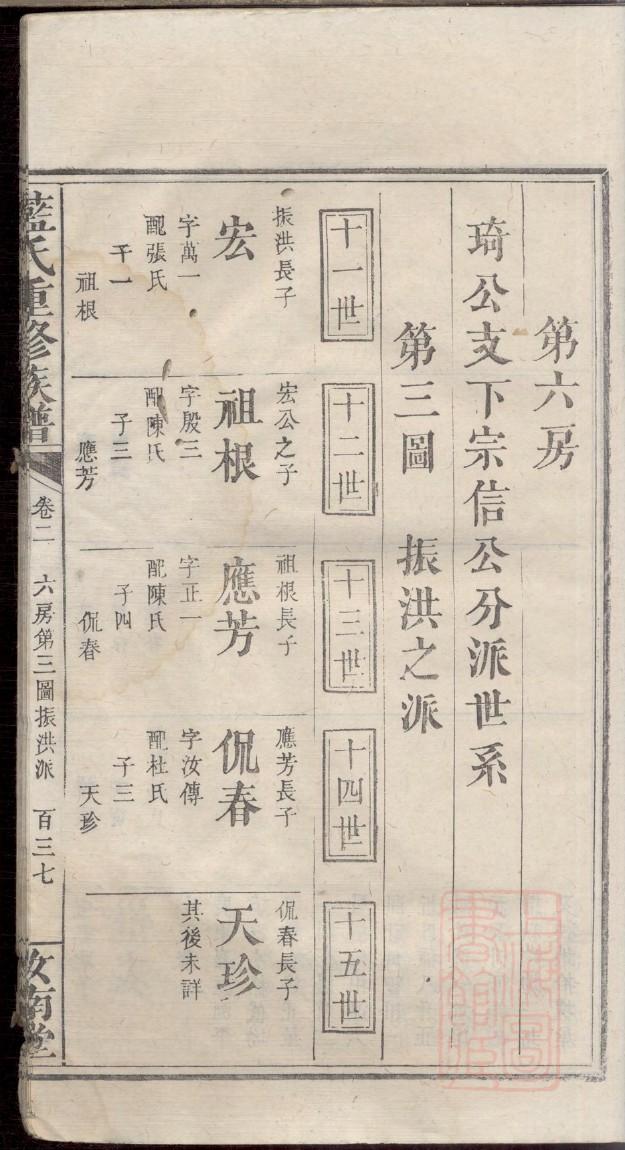 第六房
琦公支下宗信公分派世系
第三圖 振洪之派
十一世
振洪長子
宏
字萬一
配張氏
子一
祖根
十二世
宏公之子
祖根
字殷三
配陳氏
子三
應芳
十三世
祖根長子
應芳
字正一
配陳氏
子四
侃春
十四世
應芳長子
侃春
字汝傳
配杜氏
子三
天珍
十五世
侃春長子
天珍
其後未詳
藍氏重修族譜
卷二 六房第三圖振洪派 百三七
汝南堂
上海圖書館藏